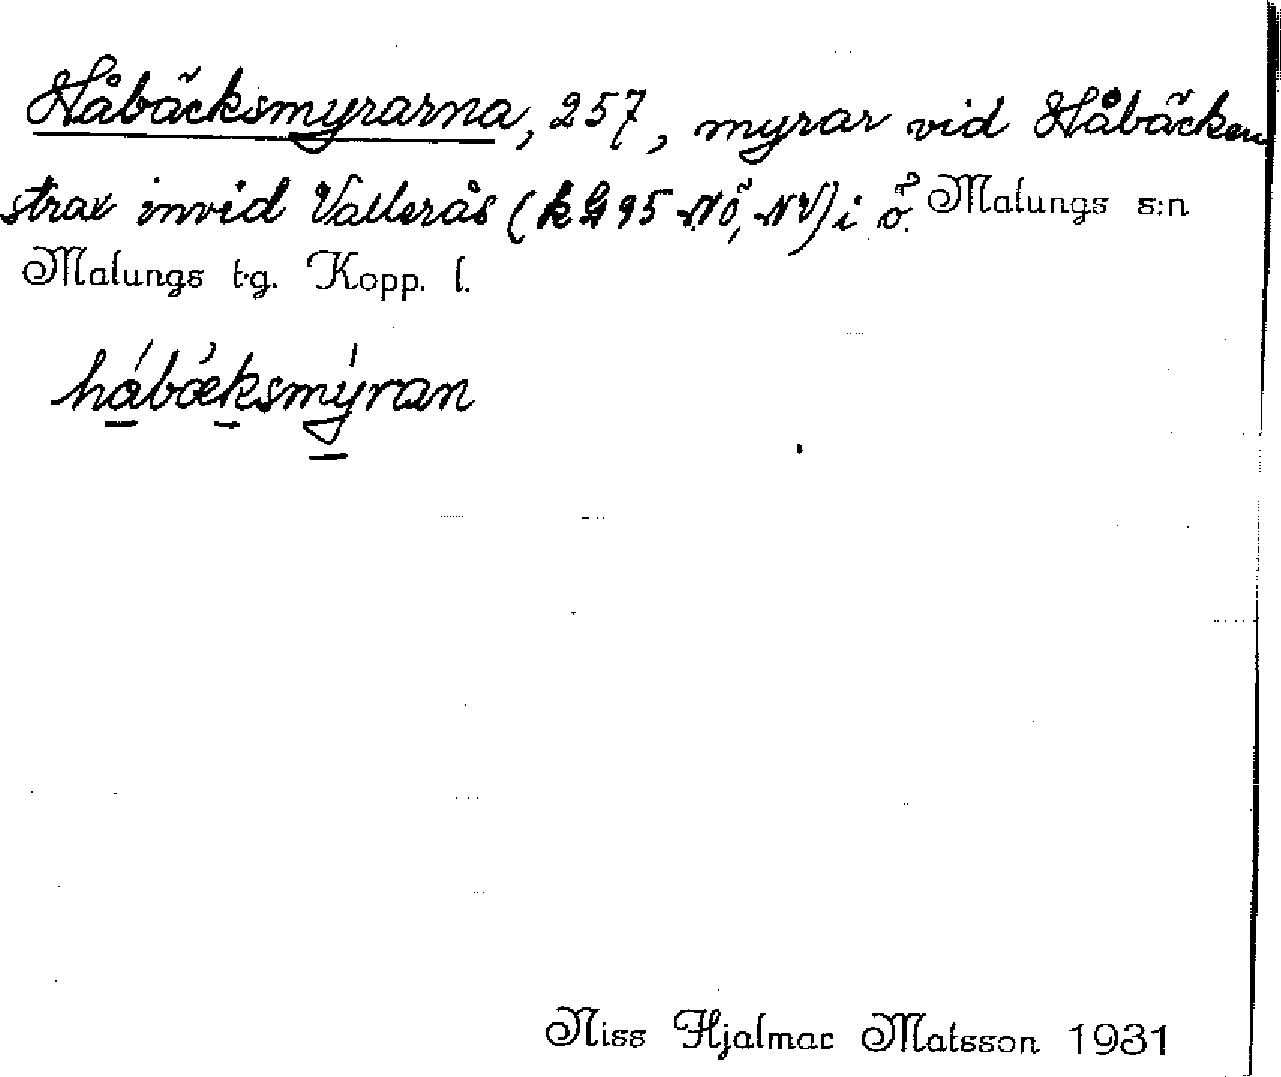 Håbäcksmyrarna, 257, myrar vid Håbäcken
strax invid Vallerås (kG 95 NÖ, NV) i ö. Malungs s:n
Malungs t·g. Kopp. l.
håbæksmýran
Niss Hjalmar Matsson 1931